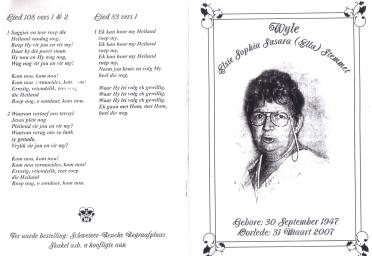 Lied 108 vers 1 & 2
1 Saggies en teer roep die
Heiland vandag nog,
Roep Hy vir jou en vir my!
Daar by die poort staan
Hy nou en Hy wag nog,
Wag nog vir jou en vir my!
Kom nou, kom nou!
Kom nou vermoeides, kom nou!
Ernstig, vriendelik, teer roep
die Heiland
Roep nog, o sondaar, kom nou.
2 Waarom vertoef ons terwyl
Jesus pleit nog
Pleitend vir jou en vir my?
Waarom verag ons so lank
sy genade,
Vrylik vir jou en vir my?
Kom nou, kom nou!
Kom nou vermoeides, kom nou!
Ernstig, vriendelik, teer roep
die Heiland
Roep nog, o sondaar, kom nou.
Ter aarde bestelling: Schweizer-Reneke Begraafplaas
Skakel asb. u hoofligte aan
Lied 83 vers 1
1 Ek kan hoor my Heiland
roep my,
Ek kan hoor my Heiland
roep my,
Ek kan hoor my Heiland
roep my,
Neem jou kruis en volg My
heel die weg.
Waar Hy lei volg ek gewillig,
Waar Hy lei volg ek gewillig,
Waar Hy lei volg ek gewillig,
Ek gaan met Hom, met Hom,
heel die weg.
Wyle
Elsie Sophia Susara (Ella) Stemmet
Gebore: 30 September 1947
Oorlede: 31 Maart 2007